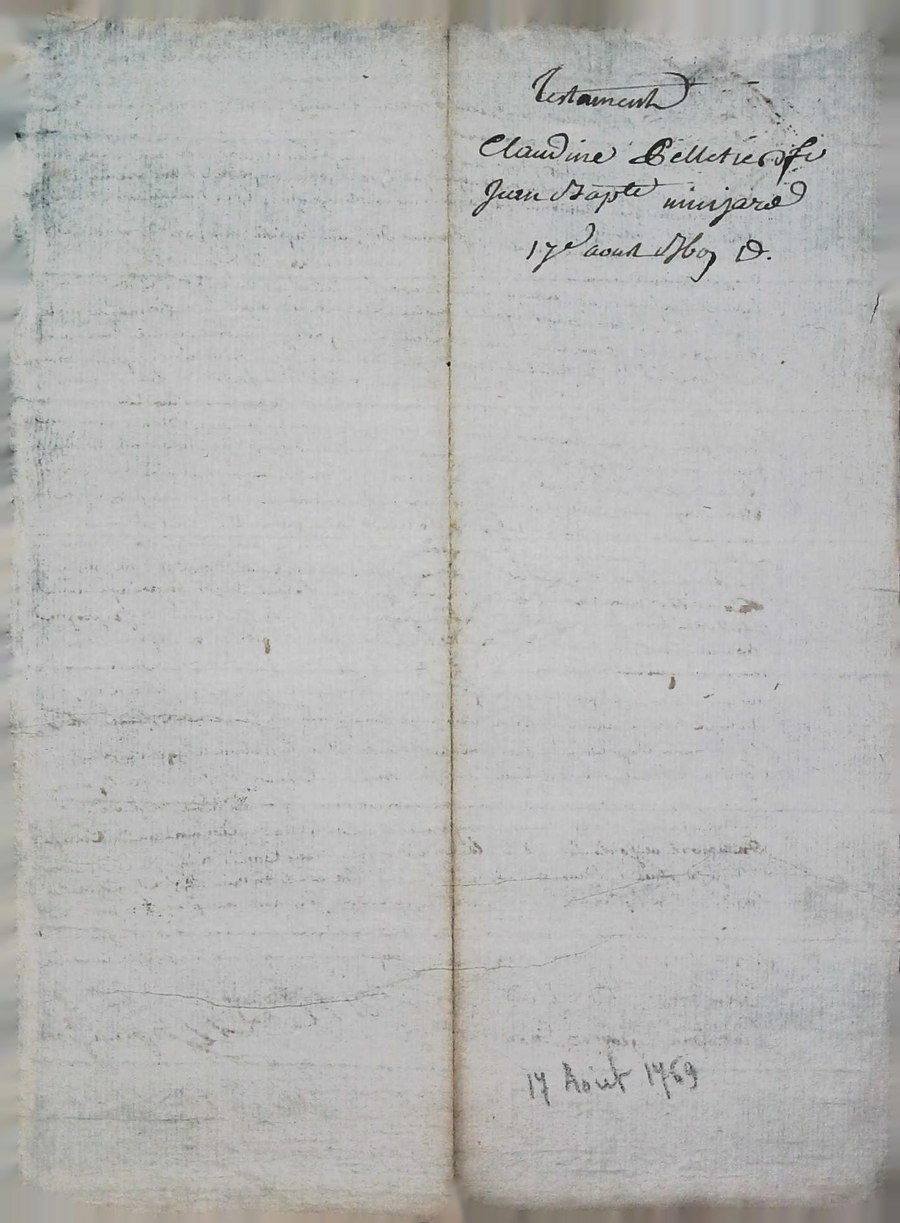 Testament
Claudine Pelletier fe
Jean Bapte minjard
17e aout 1769
17 Août 1769